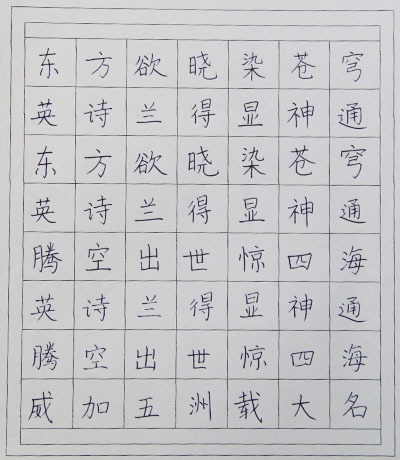 东方欲晓染苍穹
英诗兰得显神通
东方欲晓染苍穹
英诗兰得显神通
腾空出世惊四海
英诗兰得显神通
腾空出世惊四海
威加五洲载大名